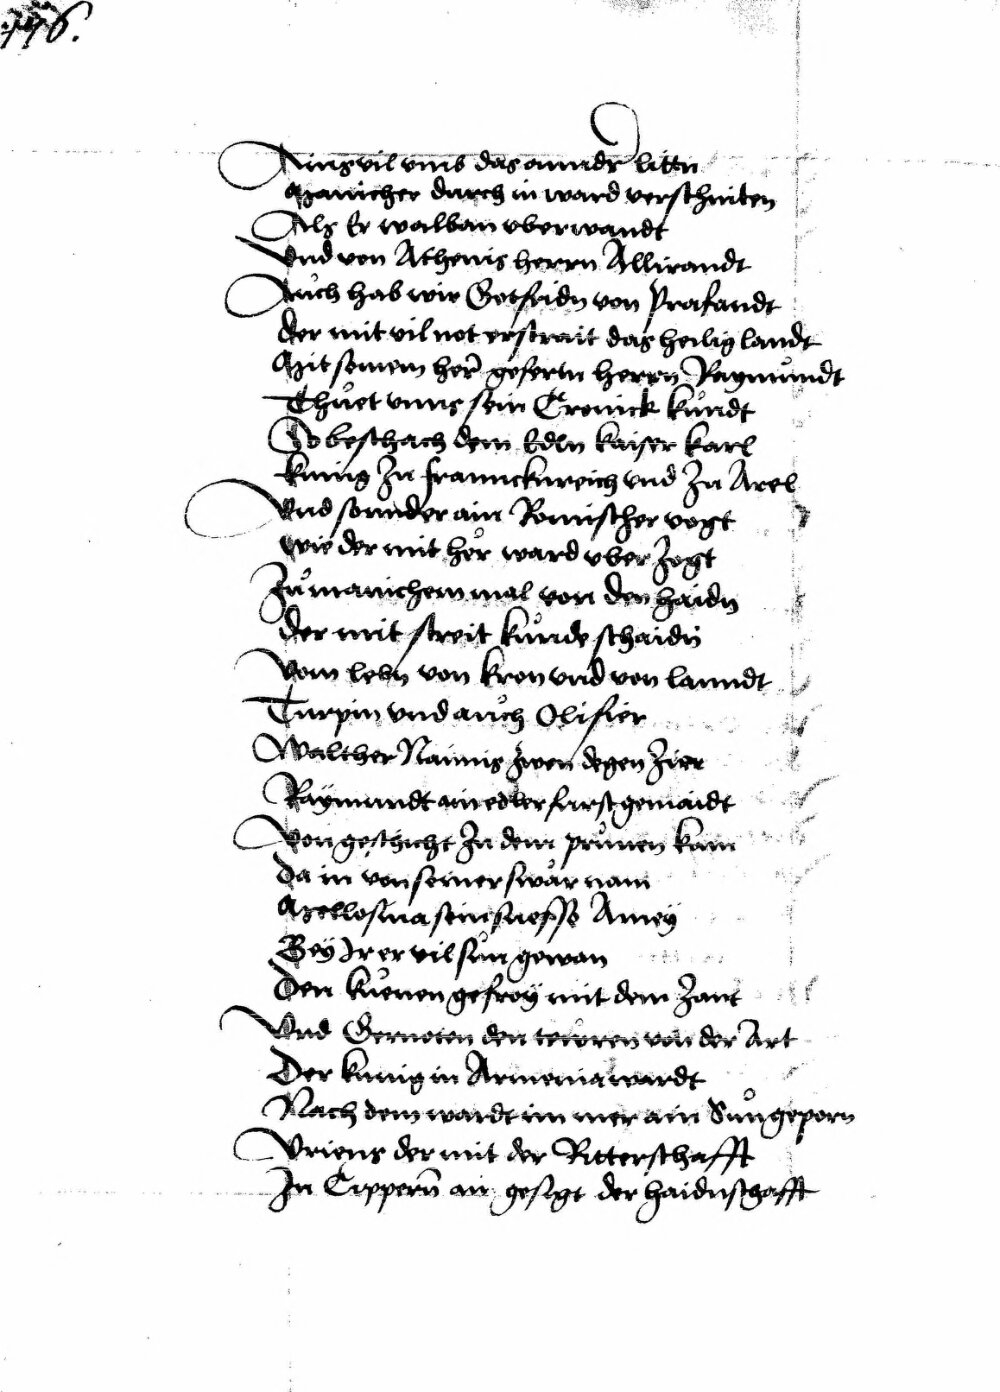 176.
Ains vil vmb das annder litt
Manicher durch in ward verschniten
Als Er walban vberwandt
Vnd von Athenis herrn Allirandt
Auch hab wir Gotfridn von Prafandt
der mit vil not erstrait das heilig landt
Mit seinem her gefertn herrn Raymundt
Thuet vnns sein Cronick kundt
So beschach dem Edln kaiser karl
kunig Zu franckhreich vnd Zu Arel
Vnd sonnder ain Romischer vogt
wie der mit hör ward vber Zogt
Zu manichem mal von den haidn
der mit streit kunde schaidn
Vom lebn von kron vnd von lanndt
Turpin vnd auch Olifier
Walther Naimis zwen degen Zier
Raymundt ain edler furst gemaidt
Von geschicht Zu dem prunen kam
Da in von seiner swär nam
Mellosina sein suesse Amey
Bey Ir er vil sun gewan
Den kuenen gefroy mit dem Zant
Vnd Gernoten den teuren von der Art
Der kunig in Armenia wardt
Nach dem wardt im mer ain Sun geporn
Vriens der mit der Ritterschafft
In Cippern an gesigt der haidnschafft